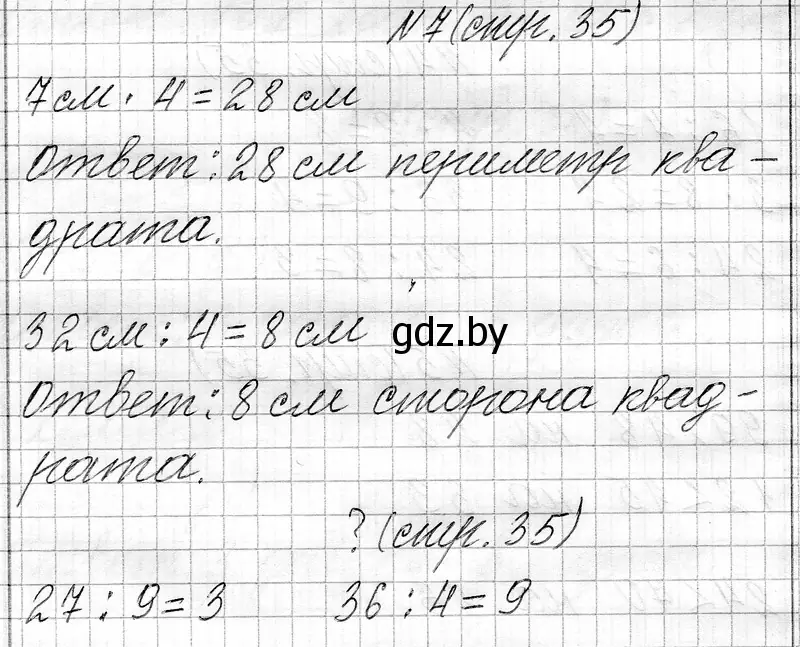 №7 (стр. 35)
7 см · 4 = 28 см
Ответ: 28 см периметр ква-
драта.
32 см : 4 = 8 см
gdz.by
Ответ: 8 см сторона квад-
рата.
? (стр. 35)
27 : 9 = 3 36 : 4 = 9